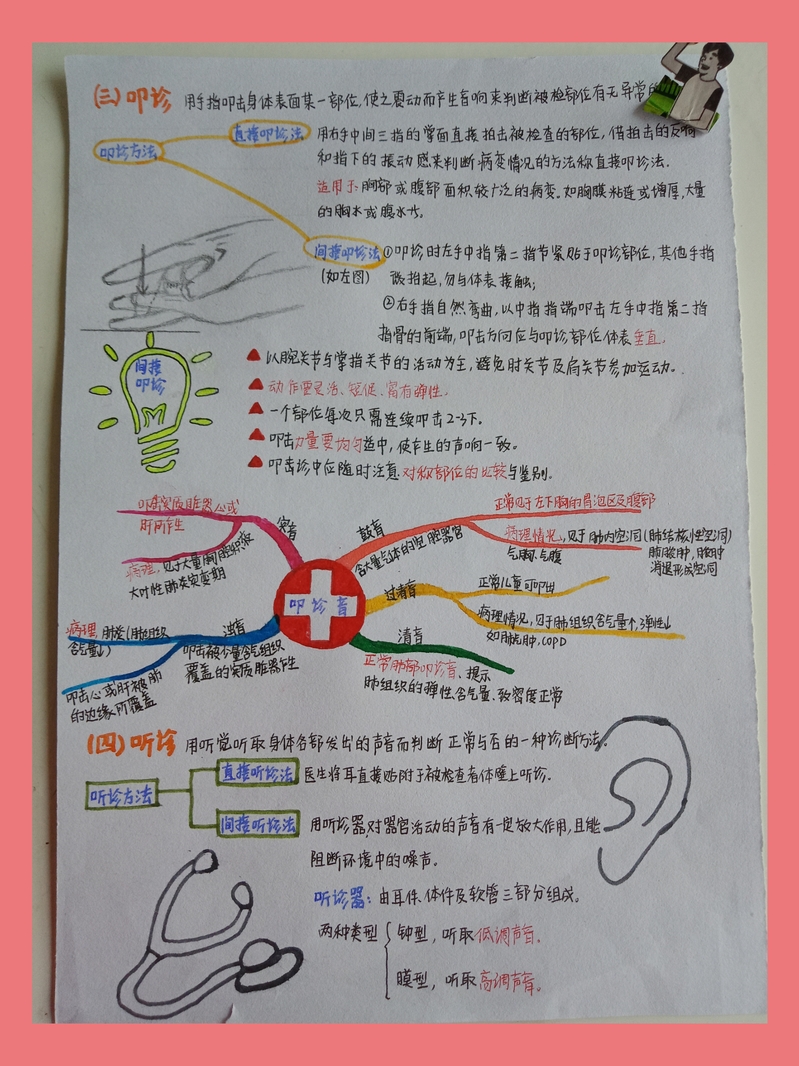 (三) 叩诊 用手指叩击身体表面某一部位,使之震动而产生音响来判断被检部位有无异常的
叩诊方法
直接叩诊法 用右手中间三指的掌面直接拍击被检查的部位,借拍击的反响
和指下的振动感来判断病变情况的方法称直接叩诊法.
适用于:胸部或腹部面积较广泛的病变.如胸膜粘连或增厚,大量
的胸水或腹水等.
间接叩诊法 ①叩诊时左手中指第二指节紧贴于叩诊部位,其他手指
(如左图) 抬起,勿与体表接触;
②右手指自然弯曲,以中指指端叩击左手中指第二指
指骨的前端,叩击方向应与叩诊部位体表垂直.
间接
叩诊
以腕关节与掌指关节的活动为主,避免肘关节及肩关节参加运动。
动作要灵活、短促、富有弹性.
一个部位每次只需连续叩击2-3下。
叩击力量要均匀适中,使产生的声响一致。
叩击诊中应随时注意对称部位的比较与鉴别。
叩诊音
实音
叩击实质脏器心或
肝所产生
病理,见于大量胸腔积液
大叶性肺炎实变期
鼓音
含大量气体的空腔脏器
正常见于左下胸的胃泡区及腹部
病理情况,见于肺内空洞(肺结核性空洞
气胸、气腹
肺脓肿,
消退形成空洞
过清音
正常儿童可叩出
病理情况,见于肺组织含气量↑,弹性↓
如肺气肿,COPD
清音
正常肺部叩诊音、提示
肺组织的弹性、含气量、致密度正常
浊音
叩击被少量含气组织
覆盖的实质脏器产生
病理,肺炎(肺组织
含气量↓)
叩击心或肝被肺
的边缘所覆盖
(四) 听诊 用听觉听取身体各部发出的声音而判断正常与否的一种诊断方法。
听诊方法
直接听诊法 医生将耳直接贴附于被检查者体壁上听诊.
间接听诊法 用听诊器,对器官活动的声音有一定放大作用,且能
阻断环境中的噪声。
听诊器:由耳件、体件及软管三部分组成。
两种类型
钟型,听取低调声音.
膜型,听取高调声音。